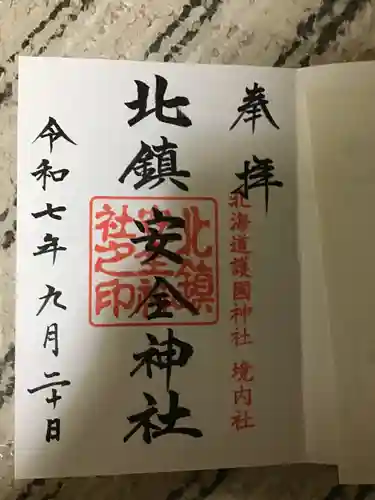 奉拝
北海道護國神社 境内社
北鎮安全神社
北鎮安全神社之印
令和七年九月二十日